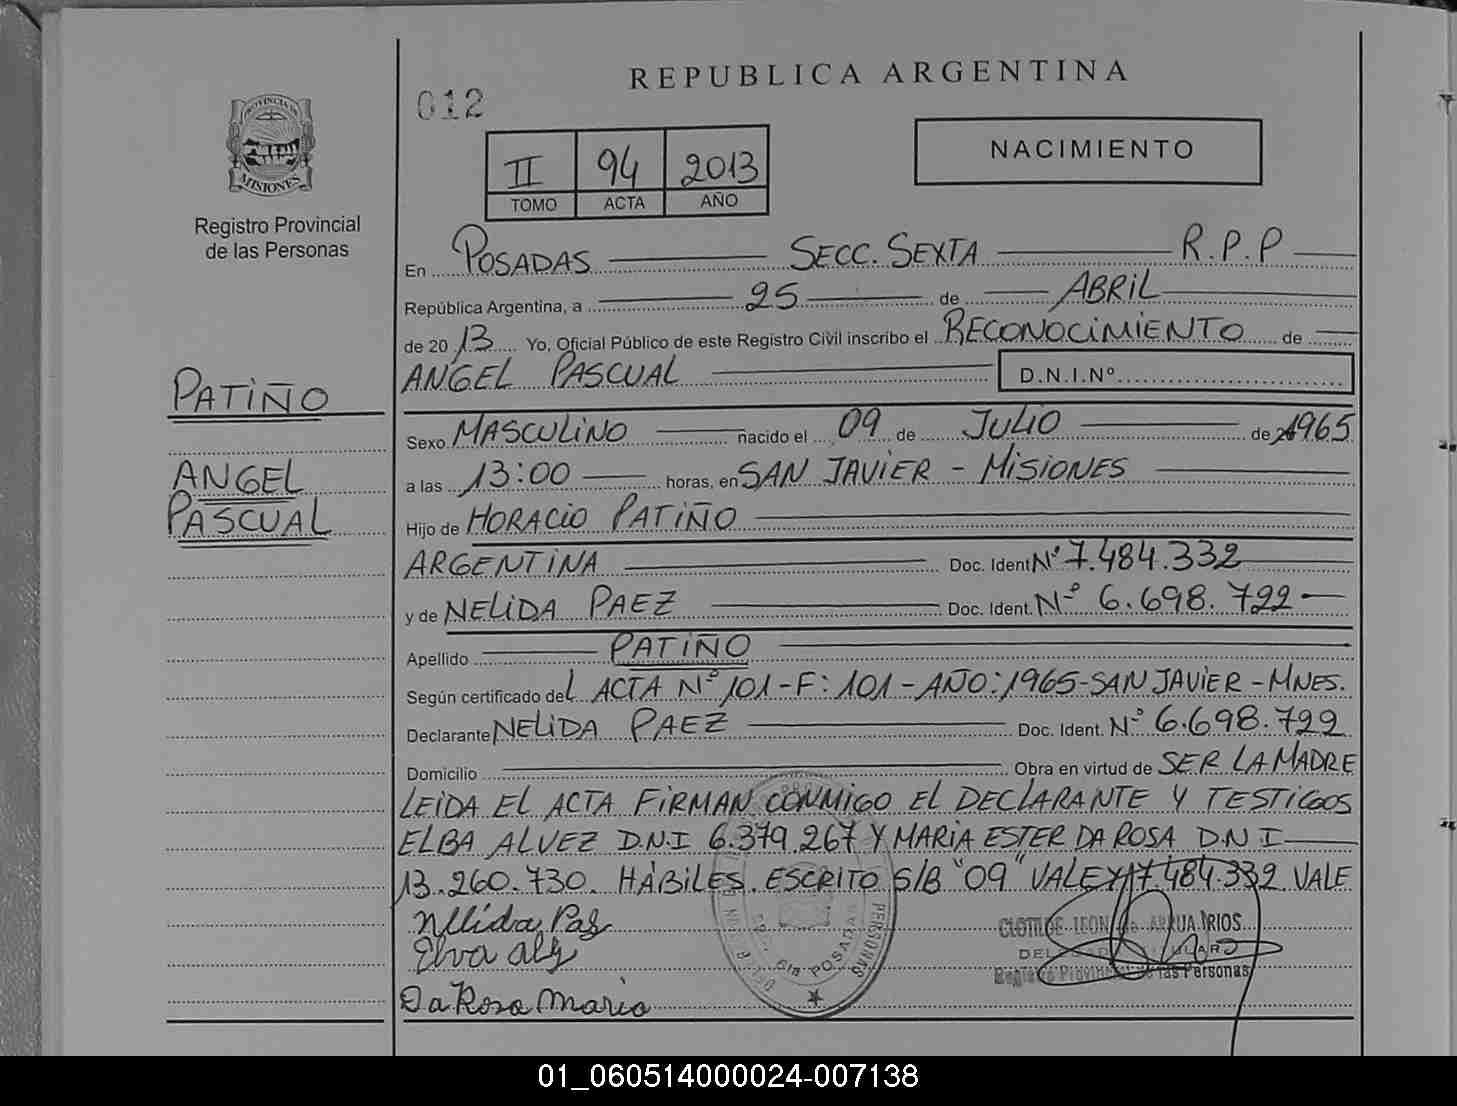 REPUBLICA ARGENTINA
012
PROVINCIA DE
MISIONES
Registro Provincial
de las Personas
II 94 2013
TOMO ACTA AÑO
NACIMIENTO
En POSADAS SECC. SEXTA R.P.P
República Argentina, a 25 de ABRIL
de 2013 Yo, Oficial Público de este Registro Civil inscribo el RECONOCIMIENTO de
ANGEL PASCUAL D.N.I.Nº
PATIÑO
Sexo MASCULINO nacido el 09 de JULIO de 1965
ANGEL
PASCUAL
a las 13:00 horas, en SAN JAVIER - MISIONES
Hijo de HORACIO PATIÑO
ARGENTINA Doc. Ident Nº 7.484.332
y de NELIDA PAEZ Doc. Ident. Nº 6.698.722
Apellido PATIÑO
Según certificado del ACTA Nº 101-F:101-AÑO:1965-SAN JAVIER-MNES.
Declarante NELIDA PAEZ Doc. Ident. Nº 6.698.722
Domicilio Obra en virtud de SER LA MADRE
LEIDA EL ACTA FIRMAN CONMIGO EL DECLARANTE Y TESTIGOS
ELBA ALVEZ D.N.I 6.379.267 Y MARIA ESTER DA ROSA D.N.I
13.260.730. HÁBILES. ESCRITO S/B "09" VALE Y 7.484.332 VALE
Nllida Paz
Elva Alz
Da Rosa Maria
CLOTILDE LEON de ARRUA RIOS
Registro Provincial de las Personas
6ta POSADAS
PERSONAS
01_060514000024-007138